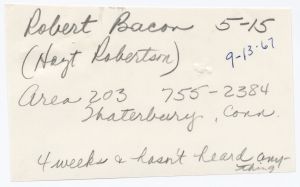 Robert Bacon 5-15
(Hoyt Robertson) 9-13-67
Area 203 755-2384
Waterbury, Conn.
4 weeks & hasn't heard any-
thing